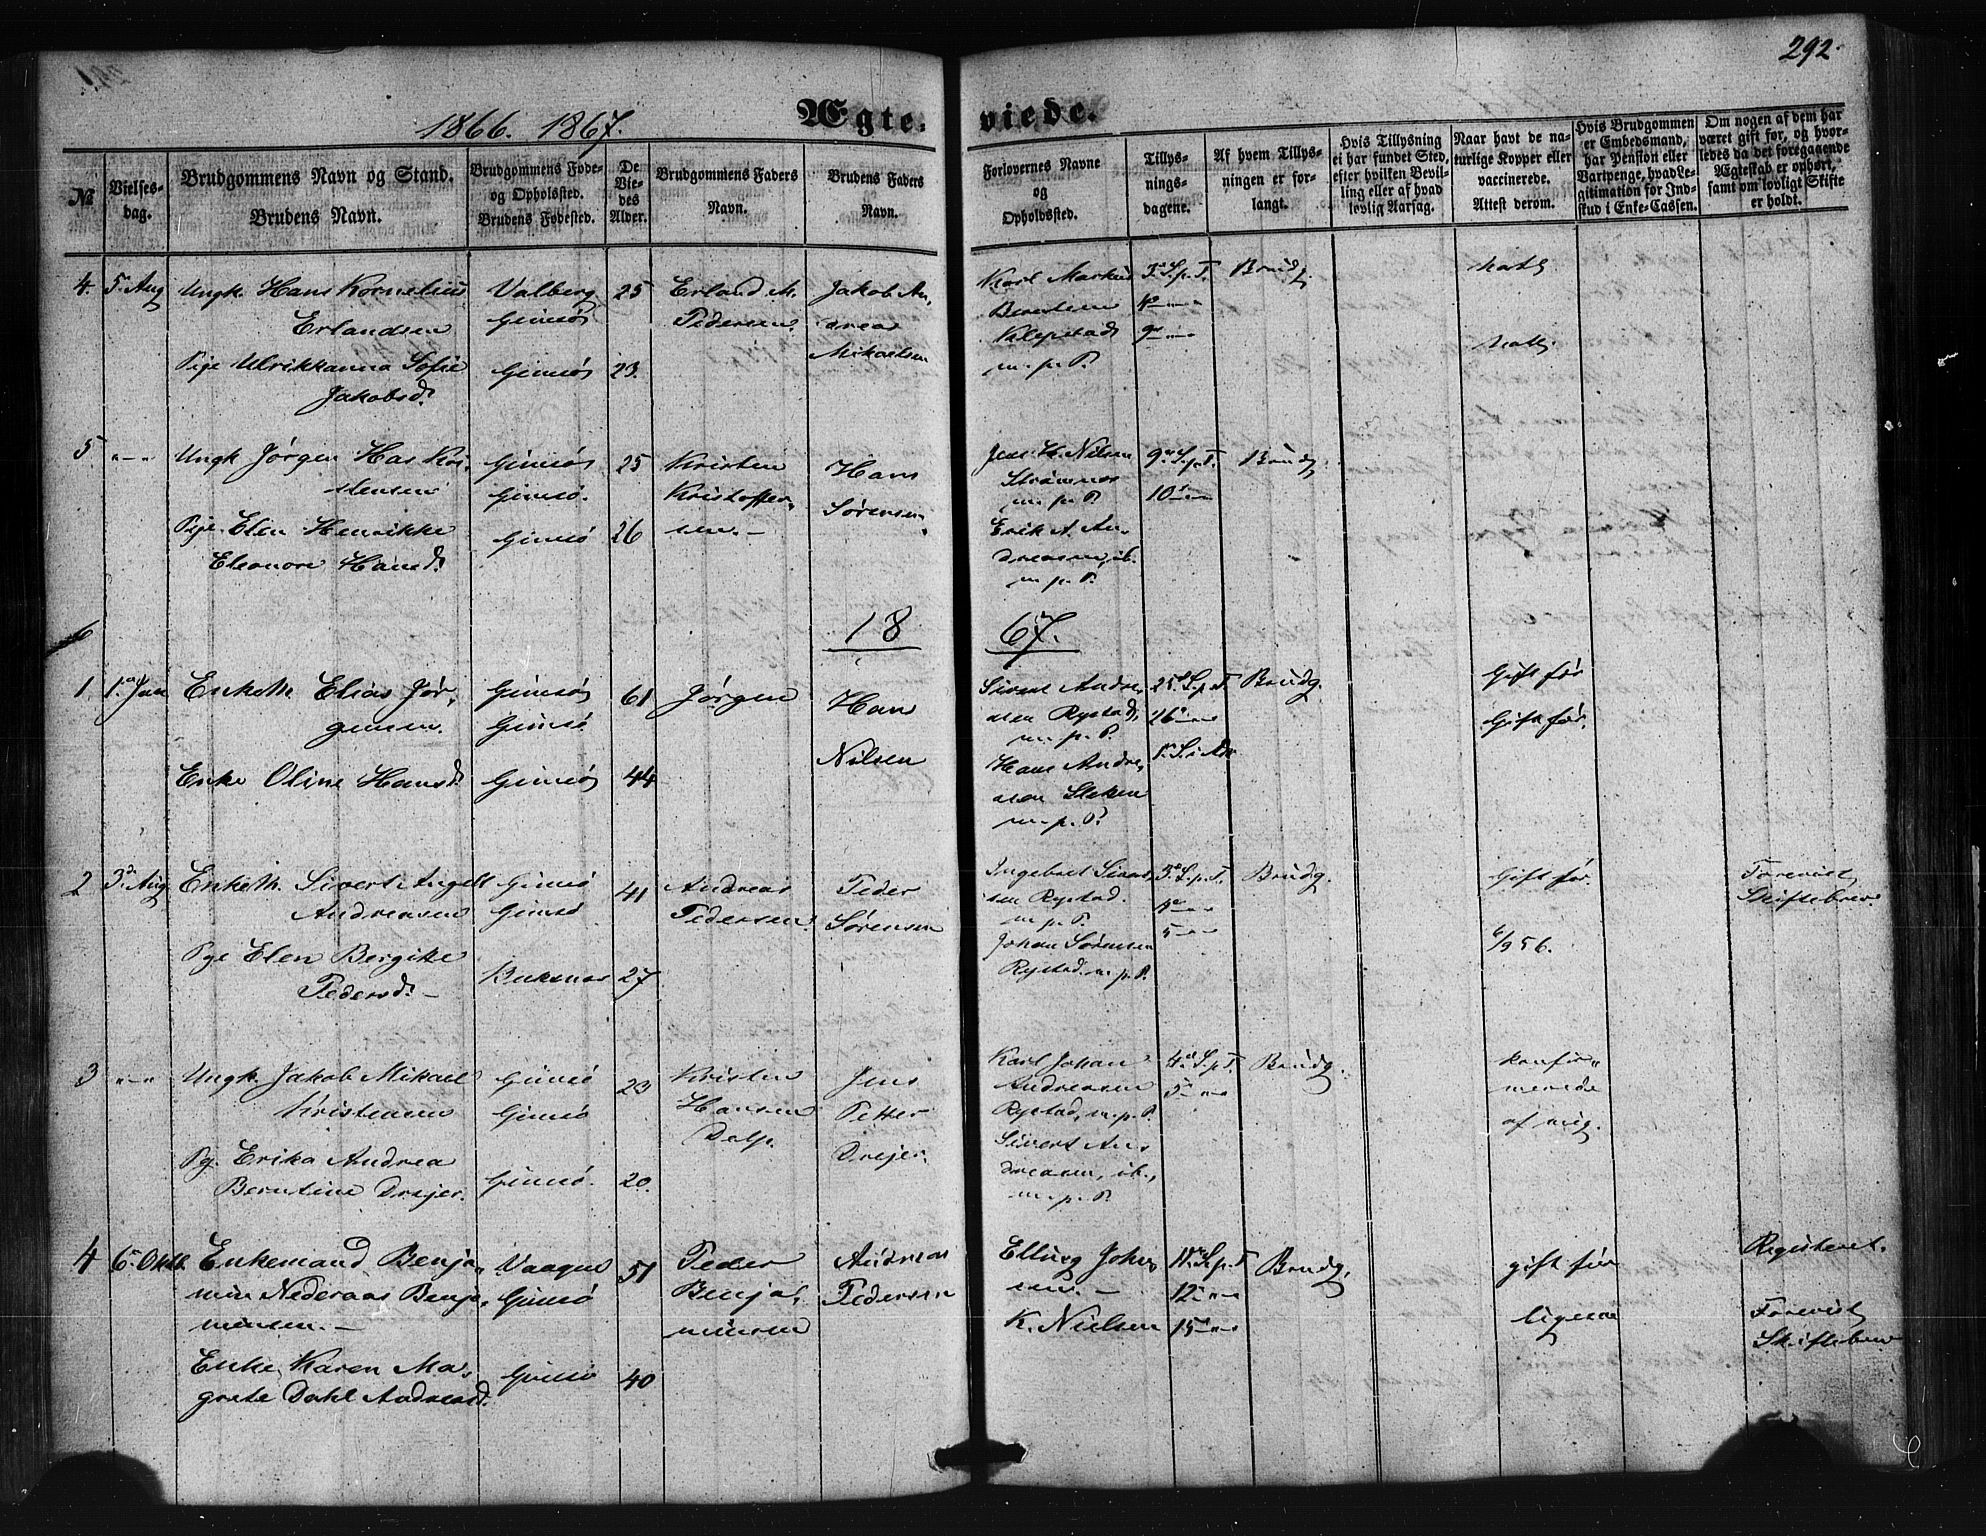 292.
1866. 1867.
Ægte-viede.
No
Vielses-dag.
Brudgommens Navn og Stand.
Brudens Navn.
Brudgommens Føde- og Opholdssted.
Brudens Fødested.
De Viedes Alder.
Brudgommens Faders Navn.
Brudens Faders Navn.
Forlovernes Navne og Opholdssted.
Tillysningsdagene.
Af hvem Tillysningen er forlangt.
Hvis Tillysning ei har fundet Sted, efter hvilken Bevilling eller af hvad lovlig Aarsag.
Naar havt de naturlige Kopper eller vaccinerede. Attest derom.
Hvis Brudgommen er Embedsmand, har Pension eller Vartpenge, hvad Legitimation for Indskud i Enke-Cassen.
Om nogen af dem har været gift før, og hvorledes da det foregaaende Ægteskab er ophørt, samt om lovligt Skifte er holdt.
4. 5. Aug Ungk. Hans Kornelius Valberg 25 Erland M. Jakob An- Karl Markus 3. S. p. T. Brudg
Erlandsen Gimsø Pedersen. dreas Berntsen 4
Mikaelsen Klepstad 9
Pige Ulrikkanna Sofie Gimsø 23. m. p. P.
Jakobsd.
5. Ungk Jørgen Has Kri- Gimsø 25 Kristen Hans Jens H. Nilsen 9. S. p. T. Brudg
stensen Gimsø. Kristoffer- Sørensen. Strømnes 10
m. p. P.
Pige Elen Henrikke Gimsø 26 sen. Erik A. An-
Eleonore Hansd. dreasen, ib.
m. p. P.
6
18 67.
1. 1. Jan Enkem Elias Jør- Gimsø 61 Jørgen Hans Sivert Andre- 25. S. p. T. Brudg. Gift før
gensen. Gimsø sen Rystad, 26 Gift før.
m. p. P.
Enke Oline Hansd. Gimsø 44 Nilsen Hans Andre- 1. S. i Adv
sen
m. p. P.
2 3. Aug Enkem. Sivert Angell Gimsø 41 Andreas Peder Ingebret 3. S. p. T. Brudg. Gift før. Forevist
Andreasen Gimsø Pedersen Sørensen sen Rystad. 4 Skiftebrev.
m. p. P. 5
Pge Elen Bergitte Buksnes 27 Johan Sørensen 6/9 56.
Pedersd. Rystad. m. p. P.
3 Ungk. Jakob Mikael Gimsø 23 Kristen Jens Karl Johan 4. S. p. T. Brudg. konfir-
Kristensen Gimsø Hansen Petter Andreasen 5 merede
Dalp. Drejer. Rystad, m. p. P. af mig.
Pg. Erika Andrea Gimsø. 20. Sivert An-
Berntine Drejer. dreasen, ib.,
m. p. P.
4 6. Oktb. Enkemand Benja- Vaagen 51 Peder Andreas Johan- 11. S. p. T Brudg. gift før Registeret.
min Nederaas Benja- Gimsø Benja- Pedersen sen. 12
minsen. minsen K. Nielsen 15 ligesaa Forevist
Skiftebrev
Enke Karen Ma- Gimsø 40
grete Dahl Andreasd.